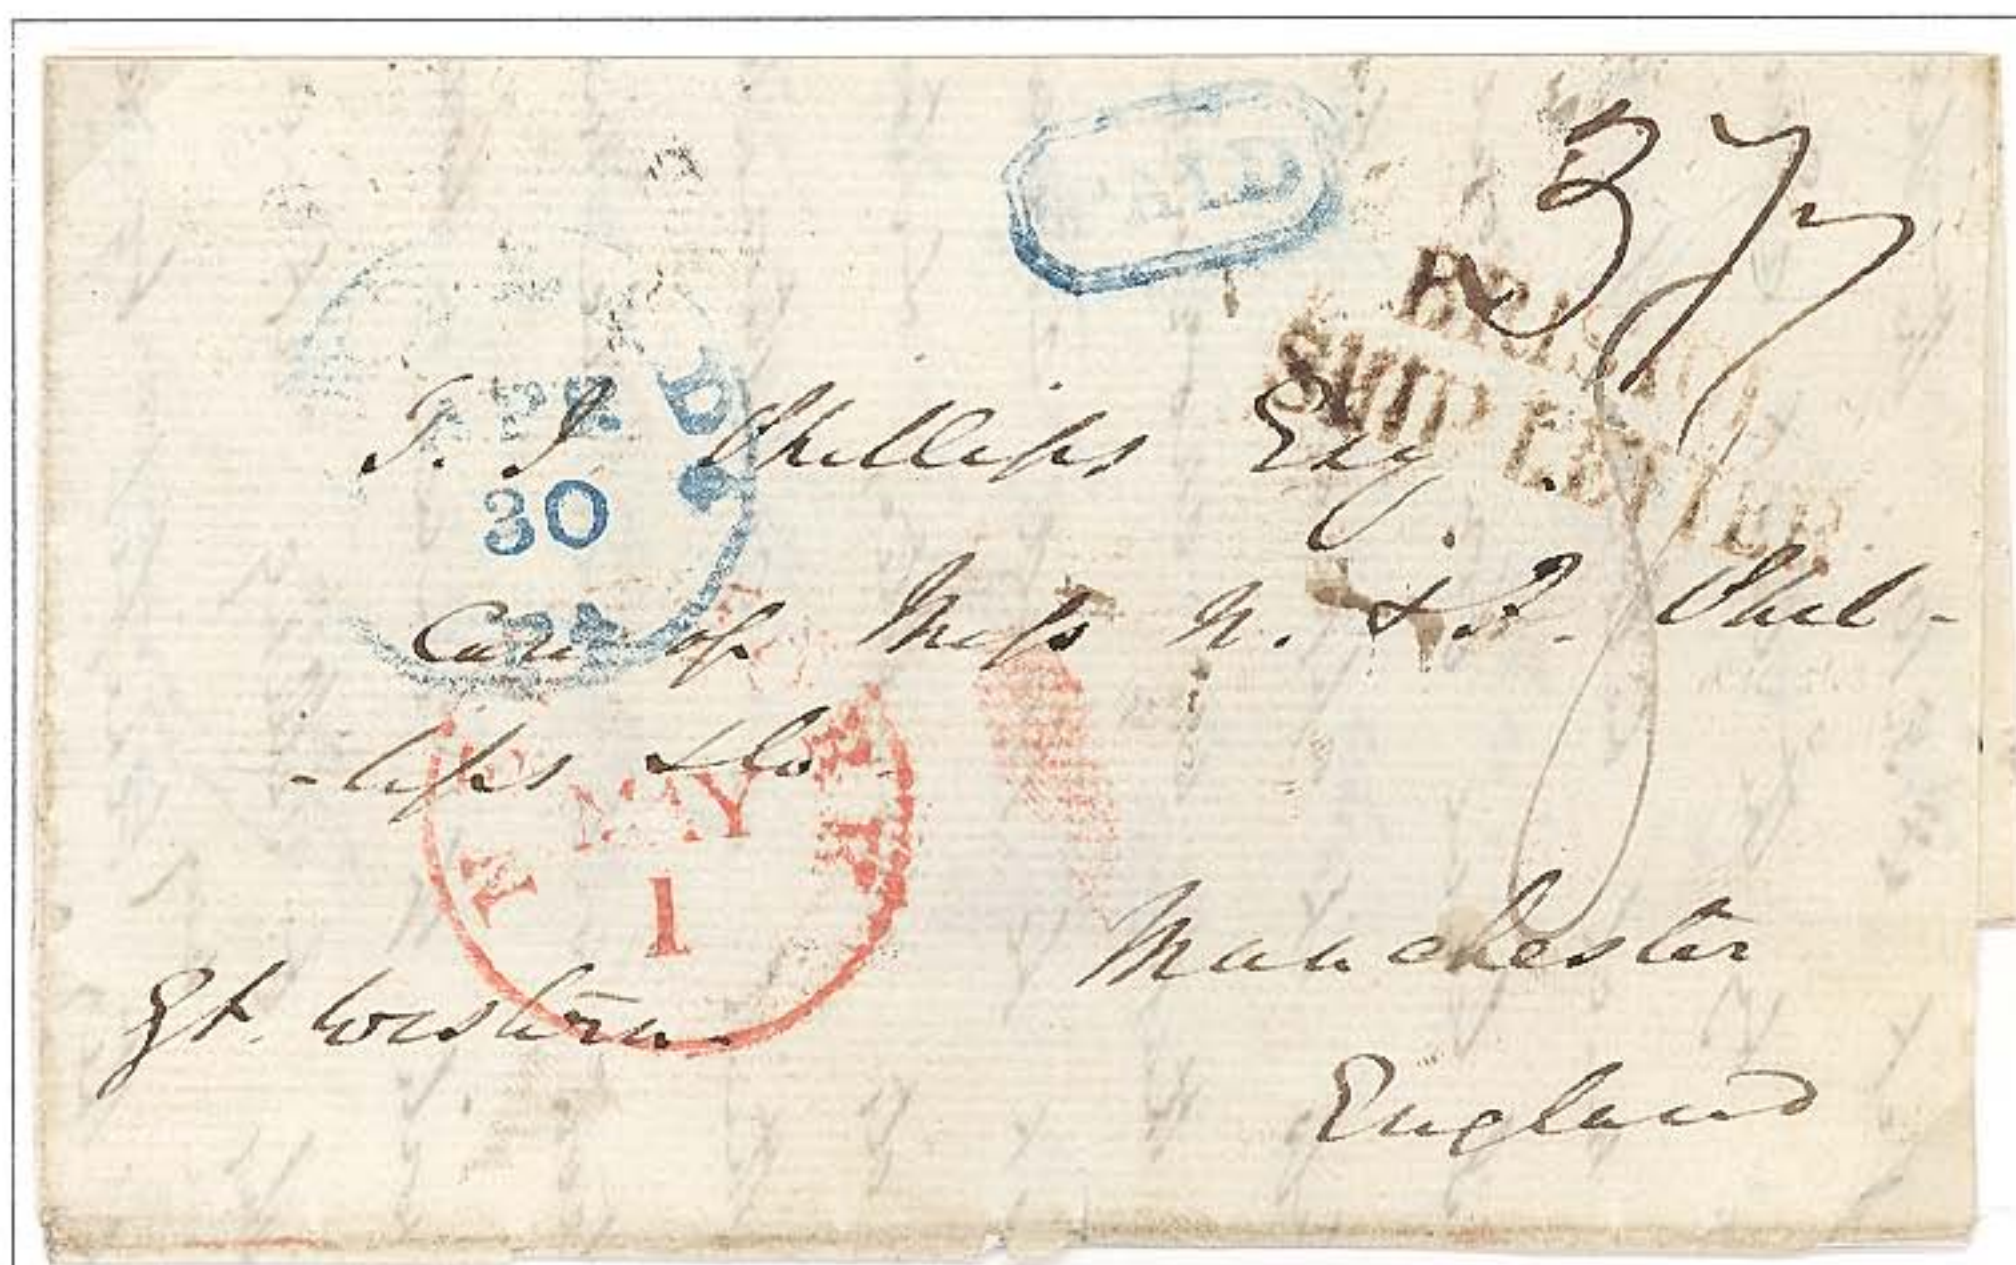 PAID
37
BRISTOL
SHIP LETTER
APR
30
PA
T. J. Phillips Esq.
Care of Mess N. & F. Phil-
-lips & Co.
MAY
1
Manchester
Gt. Western
England